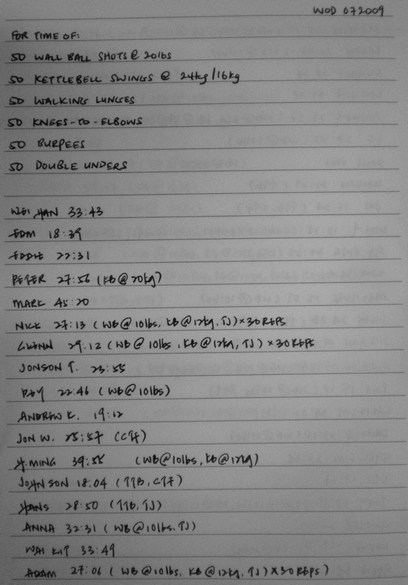 WOD 072009
FOR TIME OF:
50 WALL BALL SHOTS @ 20lbs
50 KETTLEBELL SWINGS @ 24kg/16kg
50 WALKING LUNGES
50 KNEES-TO-ELBOWS
50 BURPEES
50 DOUBLE UNDERS
WEI HAN 33:43
EDM 18:39
EDDIE 22:31
PETER 27:56 (KB@20kg)
MARK 45:20
NICK 27:13 (WB@10lbs, KB@12kg, TJ)×30REPS
GLENN 29:12 (WB@10lbs, KB@12kg, TJ)×30REPS
JONSON T. 23:55
22:46 (WB@10lbs)
ANDREW K. 19:12
JON W. 25:57 (CTF)
H.MING 39:55 (WB@10lbs, KB@12kg)
JOHNSON 18:04 (TTB, CTF)
HANS 28:50 (TTB, TJ)
ANNA 32:31 (WB@10lbs, TJ)
WAI KIT 33:49
ADAM 27:06 (WB@10lbs, KB@12kg, TJ)×30REPS)